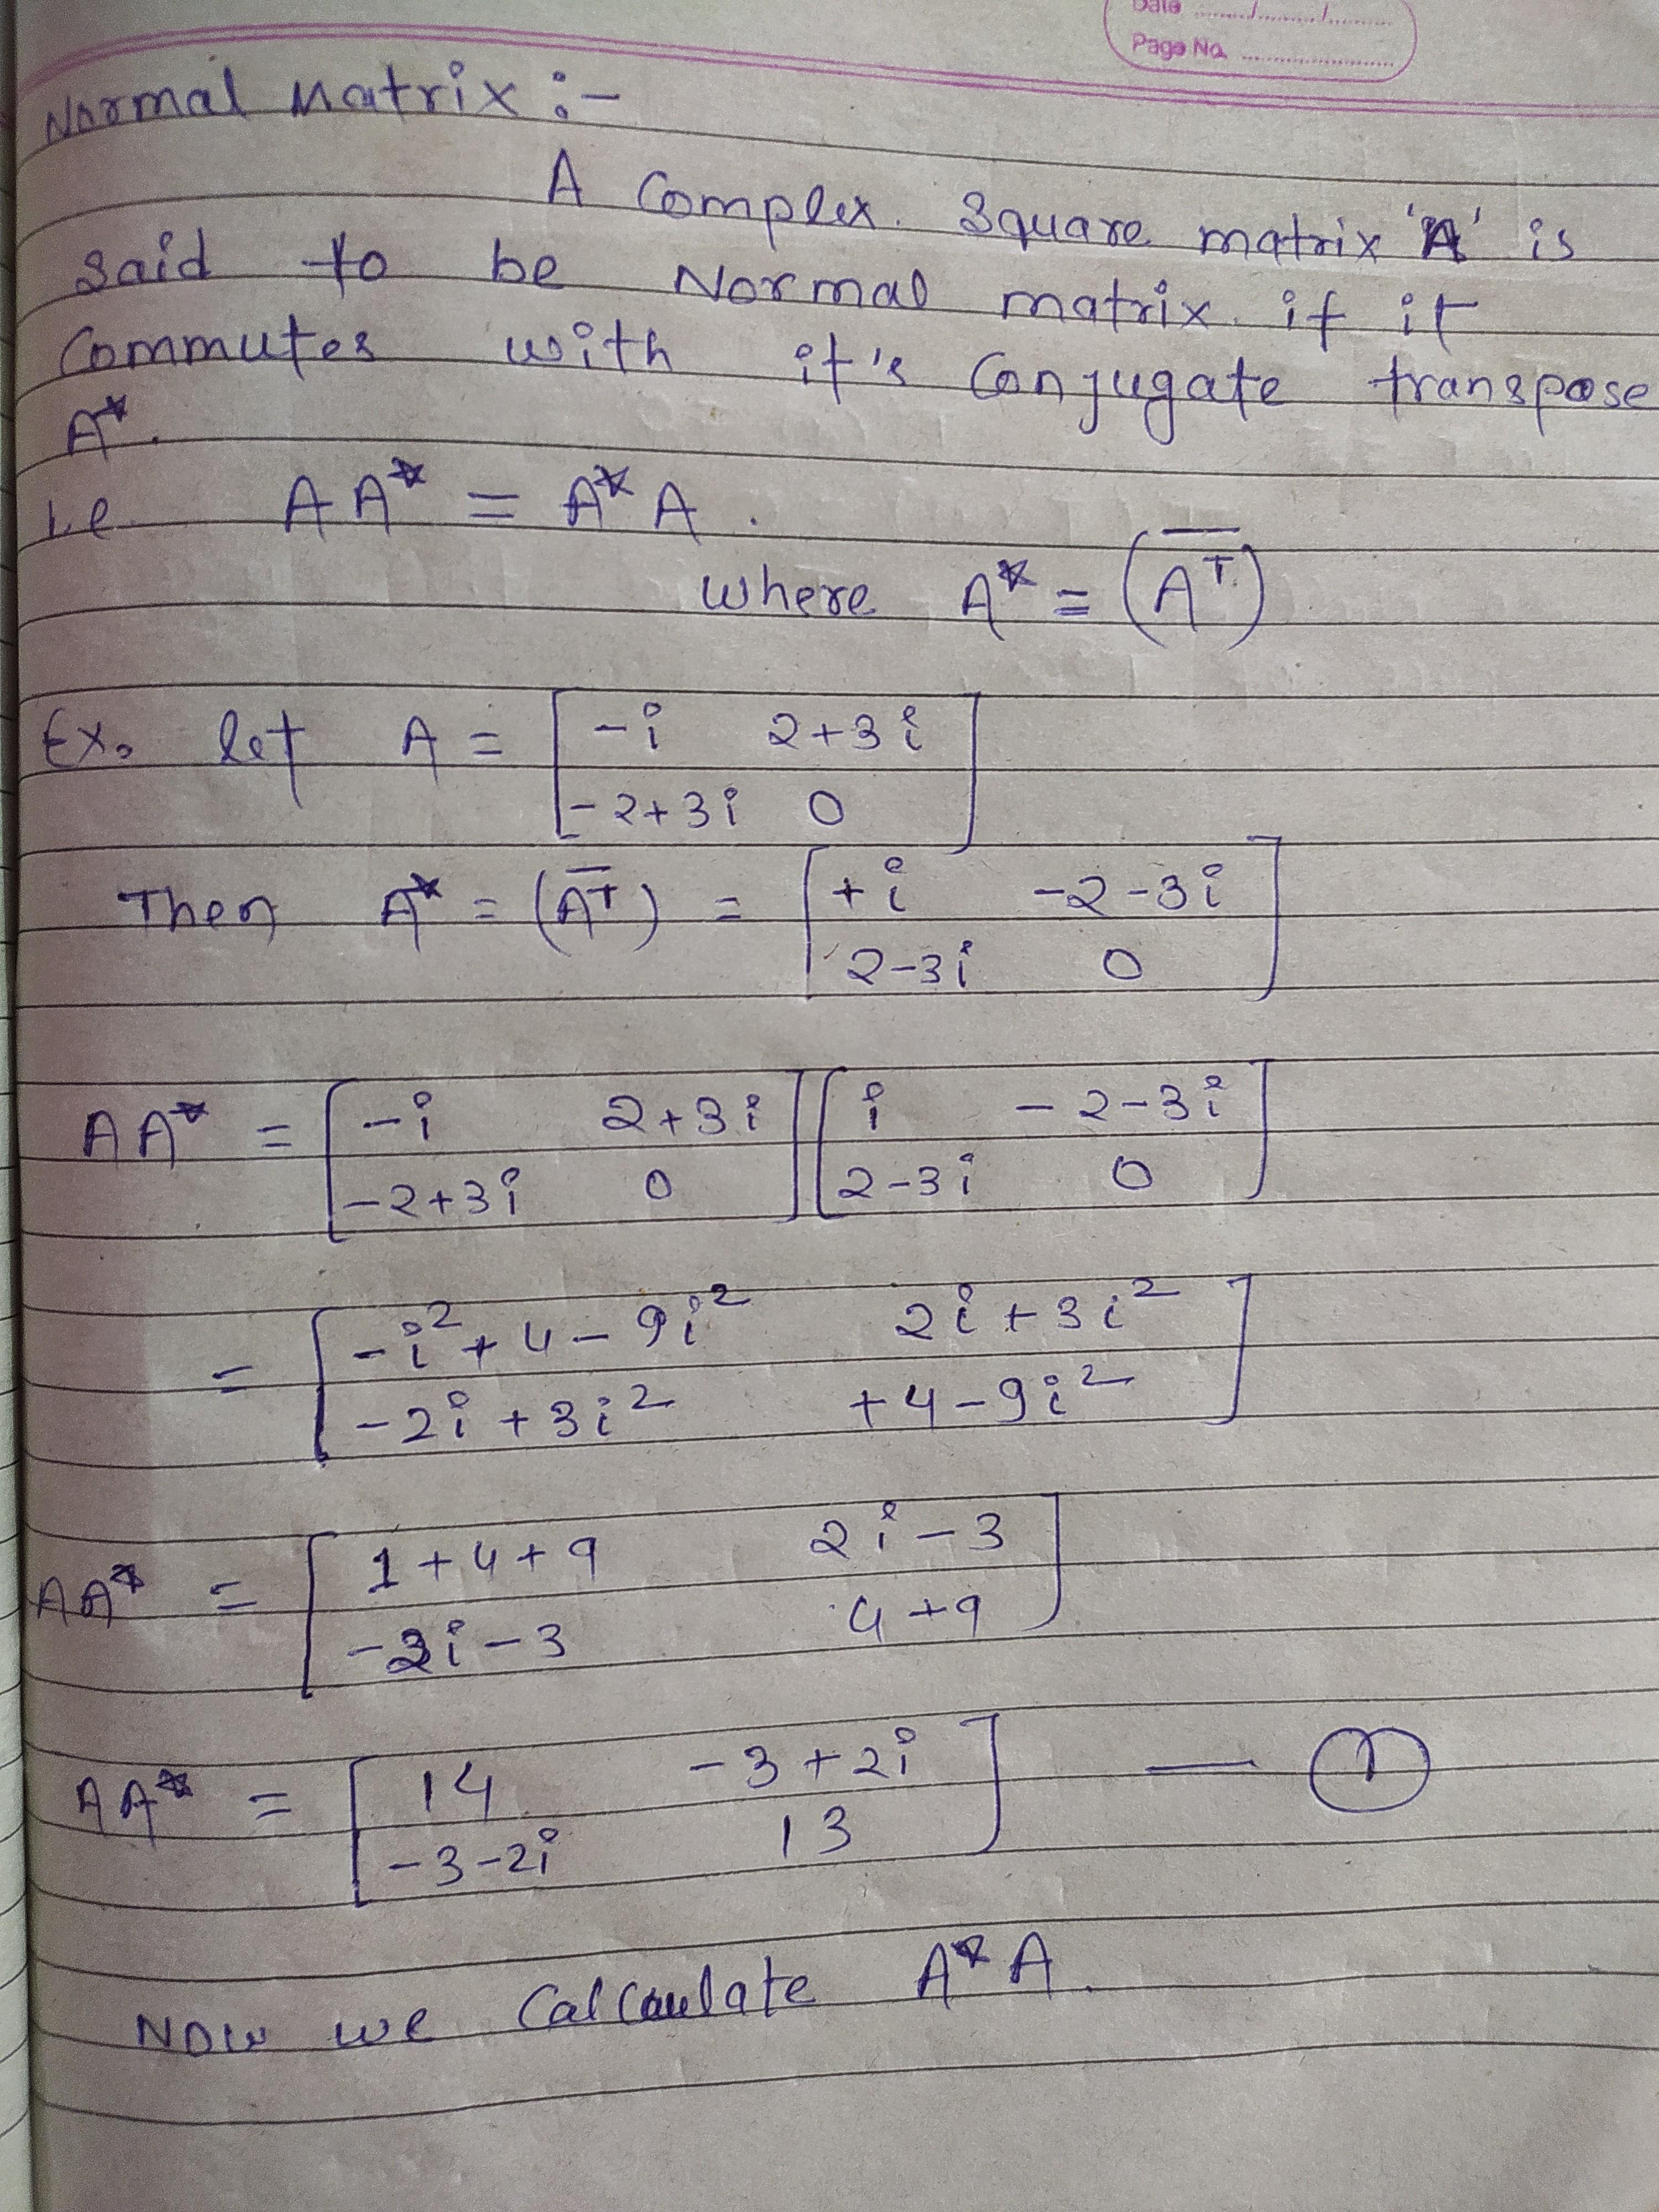 Date ......./......./.......
Page No. .......................
Normal Matrix :-
A Complex. Square matrix 'A' is
said to be Normal matrix. if it
Commutes with it's Conjugate transpose
A*.
i.e. A A* = A* A .
where A* = (A̅ᵀ̅)
Ex. let A = [ -i 2+3i
-2+3i 0 ]
Then A* = (A̅ᵀ̅) = [ +i -2-3i
2-3i 0 ]
AA* = [ -i 2+3i ] [ i -2-3i ]
[ -2+3i 0 ] [ 2-3i 0 ]
= [ -i²+4-9i² 2i+3i²
-2i+3i² +4-9i² ]
AA* = [ 1+4+9 2i-3
-2i-3 4+9 ]
AA* = [ 14 -3+2i ] — ①
[ -3-2i 13 ]
Now we Calculate A* A.